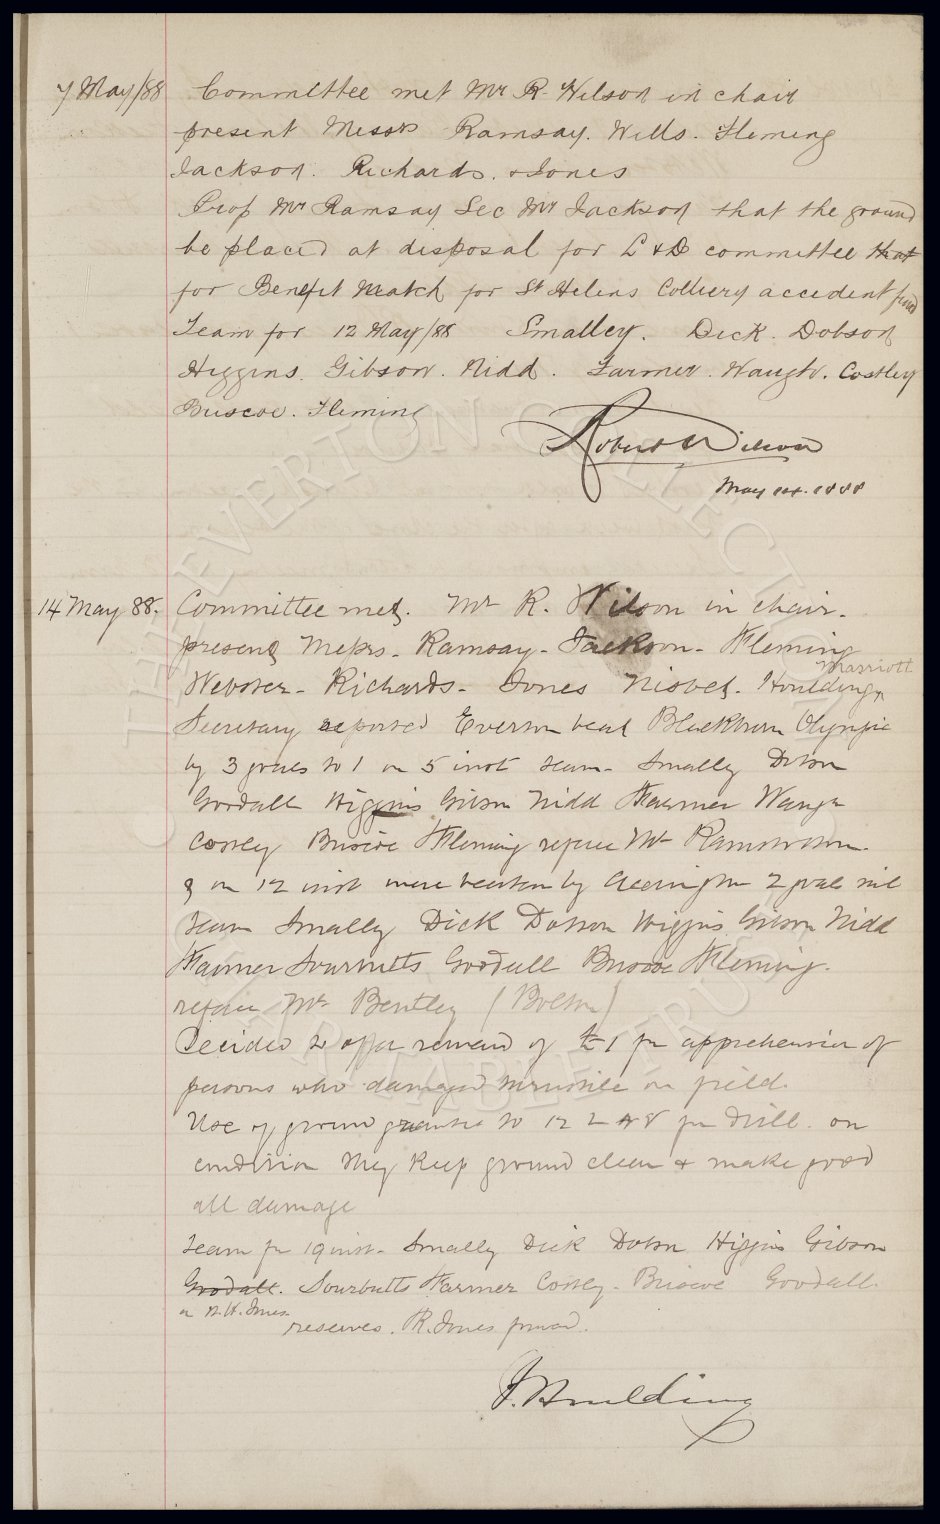 7 May/88 Committee met Mr R. Wilson in chair
present Messrs Ramsay. Wills. Fleming
Jackson. Richards. & Jones
Prop Mr Ramsay Sec Mr Jackson that the ground
be placed at disposal for L & D committee that
for Benefit Match for St Helens Colliery accedent fund
Team for 12 May/88 Smalley. Dick. Dobson
Higgins. Gibson. Nidd. Farmer. Waugh. Costley
Briscoe. Fleming
Robert Wilson
May 14. 1888
14 May 88. Committee met. Mr R. Wilson in chair.
present Messrs. Ramsay. Jackson. Fleming
Marriott
Webster. Richards. Jones Nisbet. Houlding
Secretary reported Everton beat Blackburn Olympic
by 3 goals to 1 on 5 inst team. Smally Dobson
Goodall Higgins Gibson Nidd Farmer Waugh
Costley Briscoe Fleming referee Mr
& on 12 inst were beaten by Accrington 2 goals nil
team Smally Dick Dobson Higgins Gibson Nidd
Farmer Sourbutts Goodall Briscoe Fleming.
referee Mr Bentley (Bolton)
Decided to offer reward of £1 for apprehension of
persons who damaged turnstile on field.
Use of ground granted to 12 L A V for Drill. on
condition they keep ground clean & make good
all damage
Team for 19 inst. Smally Dick Dobson Higgins Gibson
Goodall. Sourbutts Farmer Costley. Briscoe Goodall.
or R. H. Jones
reserves. R. Jones
J. Houlding
THE EVERTON COLLECTION
CHARITABLE TRUST